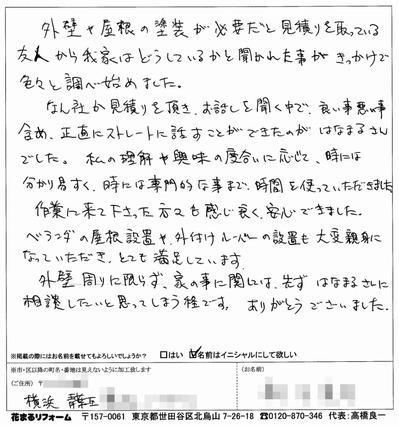 外壁や屋根の塗装が必要だと見積りを取っている
友人から我家はどうしているかと聞かれた事がきっかけで
色々と調べ始めました。
なん社か見積りを頂き、お話しを聞く中で、良い事悪い事
含め、正直にストレートに話すことができたのがはなまるさん
でした。私の理解や興味の度合いに応じて、時には
分かり易すく、時には専門的な事まで、時間を使っていただきました
作業に来て下さった方々も感じ良く、安心できました。
ベランダの屋根設置や、外付けルーバーの設置も大変親身に
なっていただき、とても満足しています。
外壁周りに限らず、家の事に関しては、先ずはなまるさんに
相談したいと思ってしまう程です。ありがとうございました。
※掲載の際にはお名前を載せてもよろしいでしょうか? □はい ☑名前はイニシャルにして欲しい
※市・区以降の町名・番地は見えないように加工致します
(ご住所) 〒
(お名前)
横浜 青葉区
花まるリフォーム 〒157-0061 東京都世田谷区北烏山7-26-18 ☎0120-870-346 代表:高橋良一